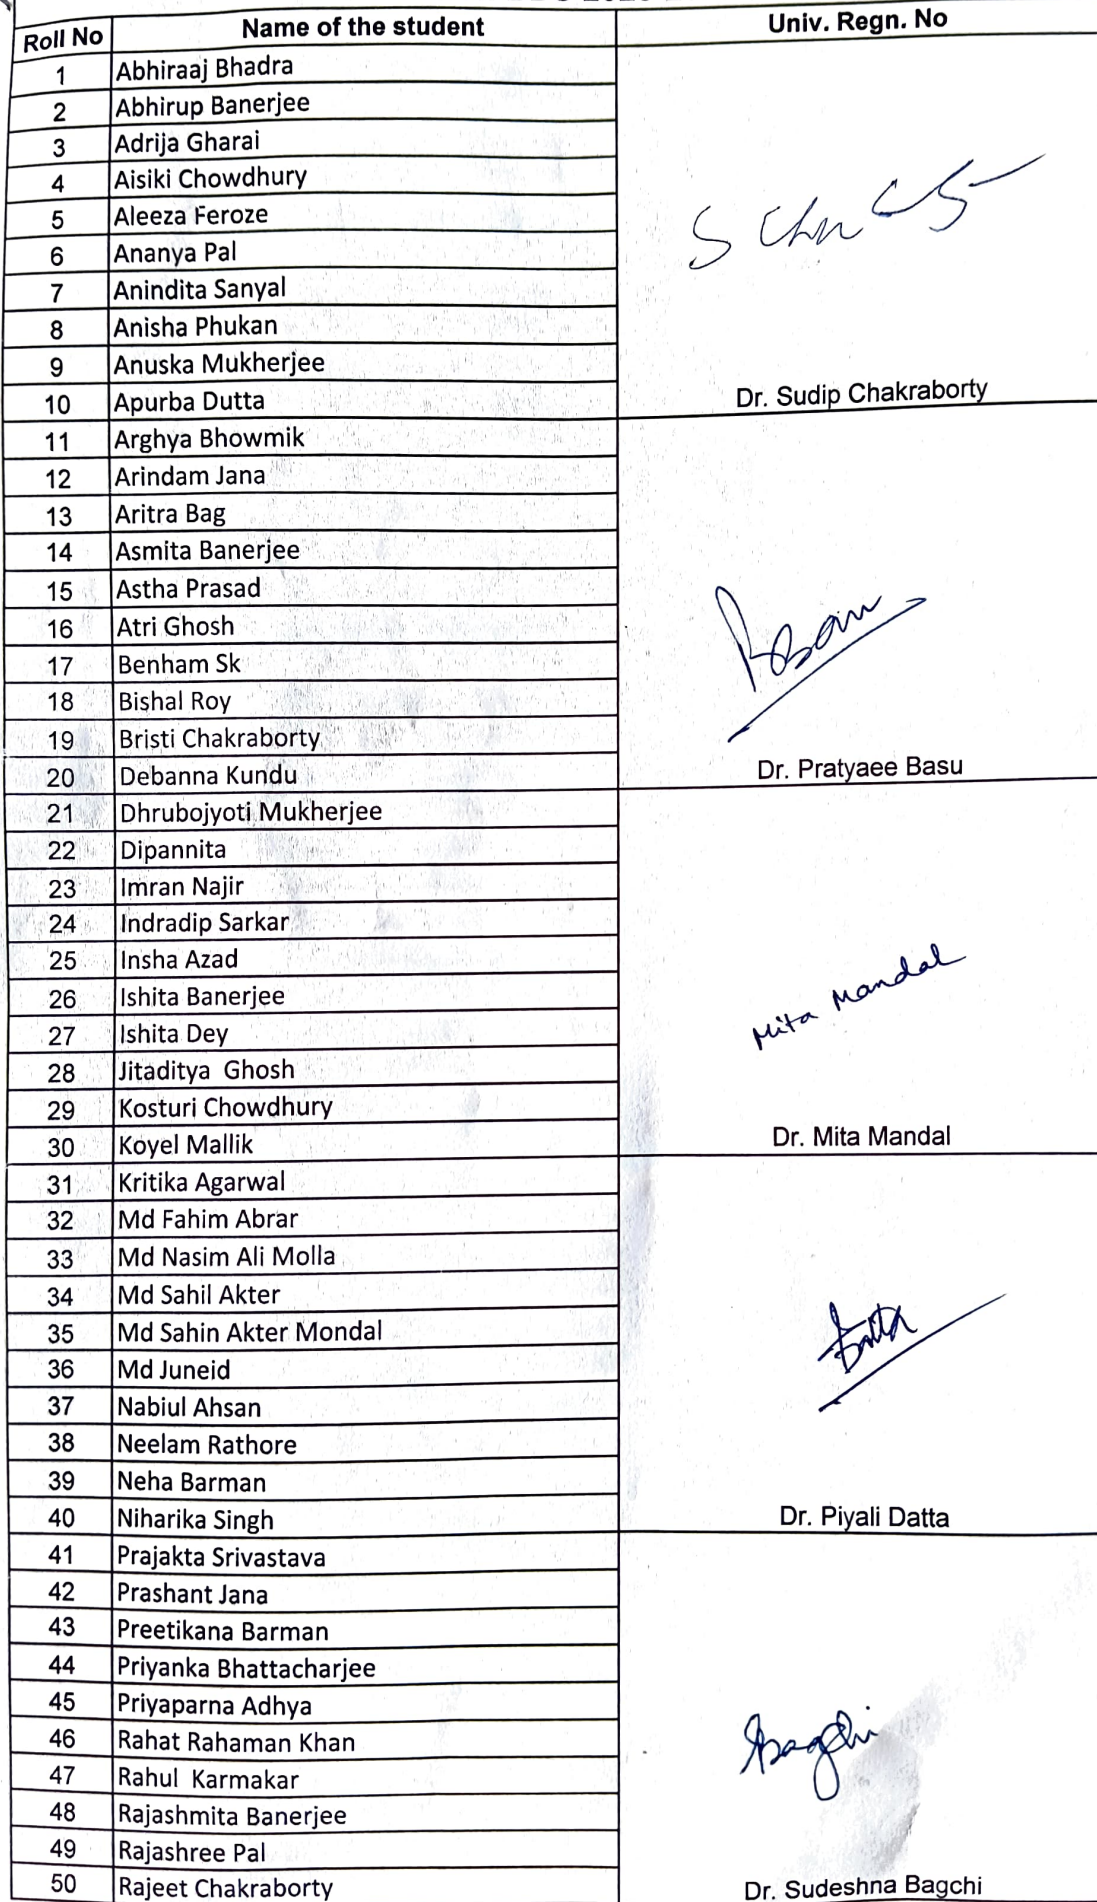 Roll No Name of the student Univ. Regn. No
1 Abhiraaj Bhadra
2 Abhirup Banerjee
3 Adrija Gharai
4 Aisiki Chowdhury
5 Aleeza Feroze
6 Ananya Pal
7 Anindita Sanyal
8 Anisha Phukan
9 Anuska Mukherjee
10 Apurba Dutta
Dr. Sudip Chakraborty
11 Arghya Bhowmik
12 Arindam Jana
13 Aritra Bag
14 Asmita Banerjee
15 Astha Prasad
16 Atri Ghosh
17 Benham Sk
18 Bishal Roy
19 Bristi Chakraborty
20 Debanna Kundu
Dr. Pratyaee Basu
21 Dhrubojyoti Mukherjee
22 Dipannita
23 Imran Najir
24 Indradip Sarkar
25 Insha Azad
26 Ishita Banerjee
27 Ishita Dey
28 Jitaditya Ghosh
29 Kosturi Chowdhury
30 Koyel Mallik
Mita Mandal
Dr. Mita Mandal
31 Kritika Agarwal
32 Md Fahim Abrar
33 Md Nasim Ali Molla
34 Md Sahil Akter
35 Md Sahin Akter Mondal
36 Md Juneid
37 Nabiul Ahsan
38 Neelam Rathore
39 Neha Barman
40 Niharika Singh
Dr. Piyali Datta
41 Prajakta Srivastava
42 Prashant Jana
43 Preetikana Barman
44 Priyanka Bhattacharjee
45 Priyaparna Adhya
46 Rahat Rahaman Khan
47 Rahul Karmakar
48 Rajashmita Banerjee
49 Rajashree Pal
50 Rajeet Chakraborty
Dr. Sudeshna Bagchi